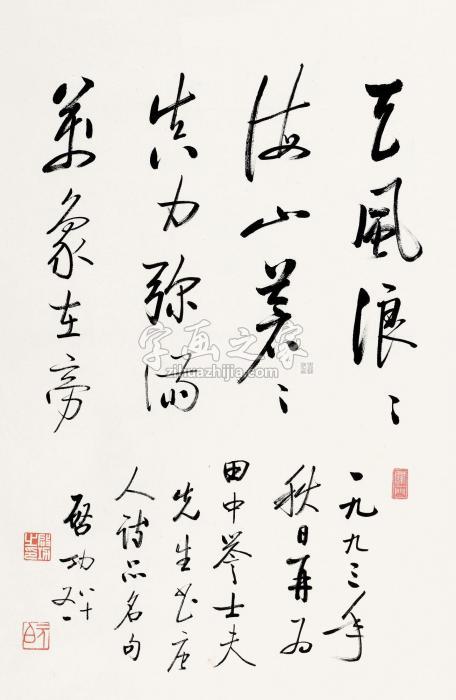 天風浪〻
海山蒼〻
真力弥滿
萬象在旁
一九九三年
秋日再为
田中誉士夫
先生书唐
人詩品名句
啟功
八十又一
字画之家
zihuazhijia.com